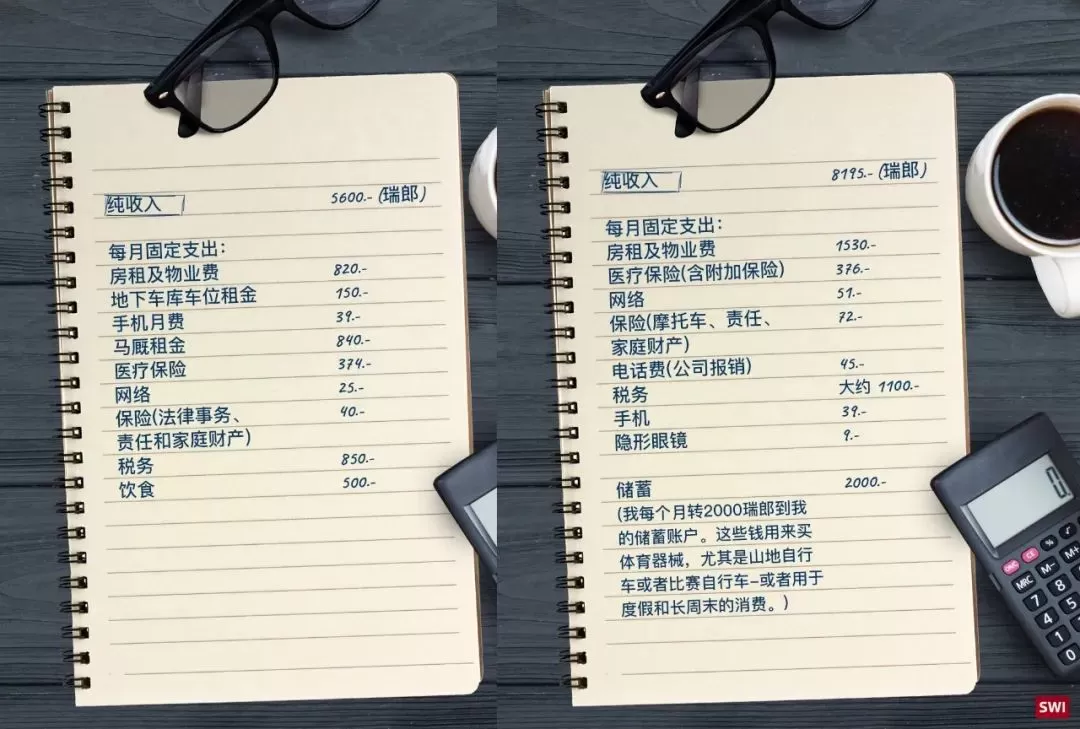 纯收入 5600.- (瑞郎)
每月固定支出:
房租及物业费 820.-
地下车库车位租金 150.-
手机月费 39.-
马厩租金 840.-
医疗保险 374.-
网络 25.-
保险(法律事务、 40.-
责任和家庭财产)
税务 850.-
饮食 500.-
纯收入 8195.- (瑞郎)
每月固定支出:
房租及物业费 1530.-
医疗保险(含附加保险) 376.-
网络 51.-
保险(摩托车、责任、 72.-
家庭财产)
电话费(公司报销) 45.-
税务 大约 1100.-
手机 39.-
隐形眼镜 9.-
储蓄 2000.-
(我每个月转2000瑞郎到我
的储蓄账户。这些钱用来买
体育器械，尤其是山地自行
车或者比赛自行车-或者用于
度假和长周末的消费。)
0
% √
ON/C CE
MRC M- M+
7 8
4 5
1
0
SWI